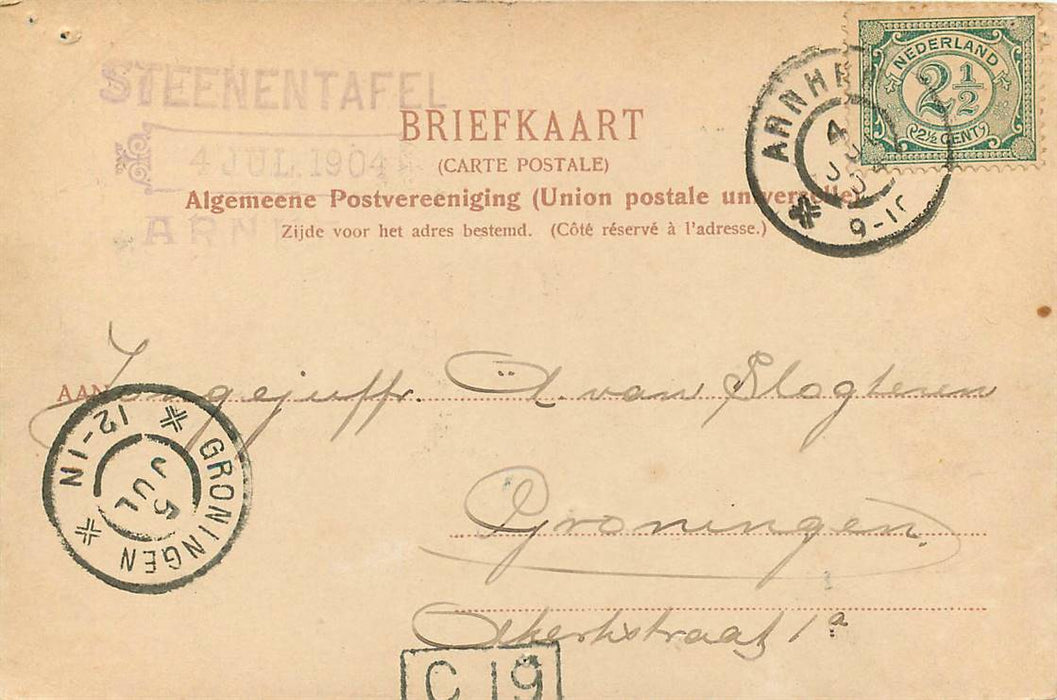 STEENENTAFEL
4 JUL. 1904
ARN
BRIEFKAART
(CARTE POSTALE)
Algemeene Postvereeniging (Union postale universelle)
Zijde voor het adres bestemd. (Côté réservé à l'adresse.)
NEDERLAND
2½
2½ CENT
ARNHE
4
9-1
AAN Jongejuffr. A. van Slogteren
Groningen.
Akerkstraat 1a
GRONINGEN
5 JUL
12-1N
C 19